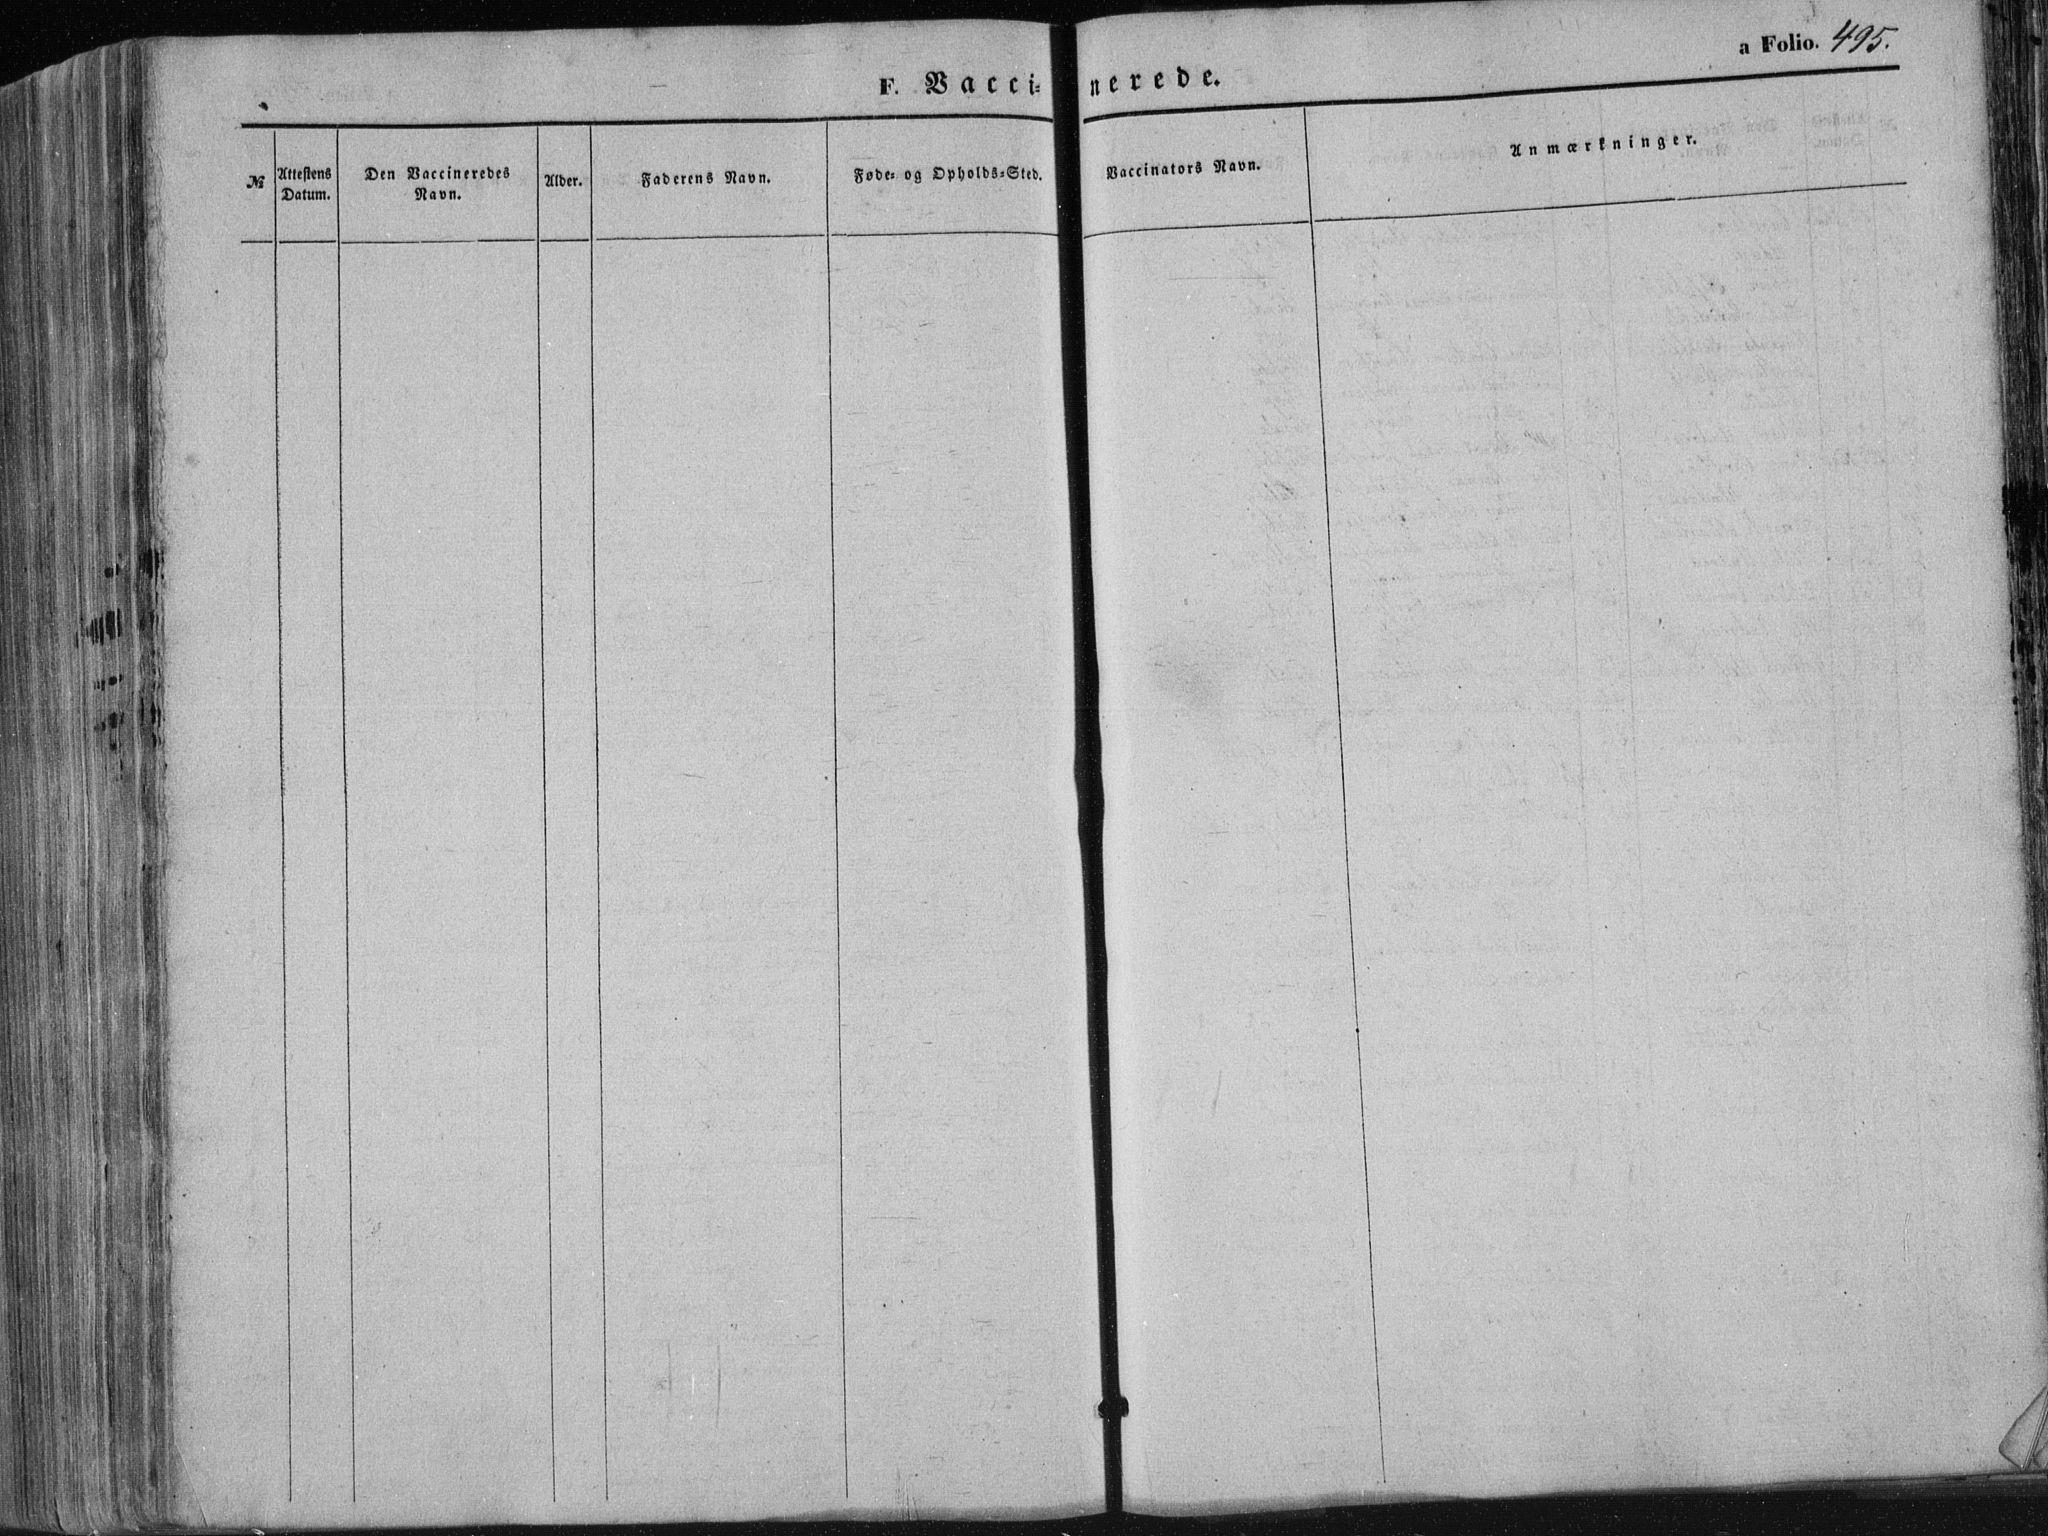 a Folio. 495.
F. Vacci=nerede.
№
Attestens Datum.
Den Vaccineredes Navn.
Alder.
Faderens Navn.
Føde= og Opholds=Sted.
Vaccinators Navn.
Anmærkninger.